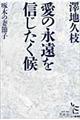 澤地久枝
愛の永遠を
信じたく候
啄木の妻節子